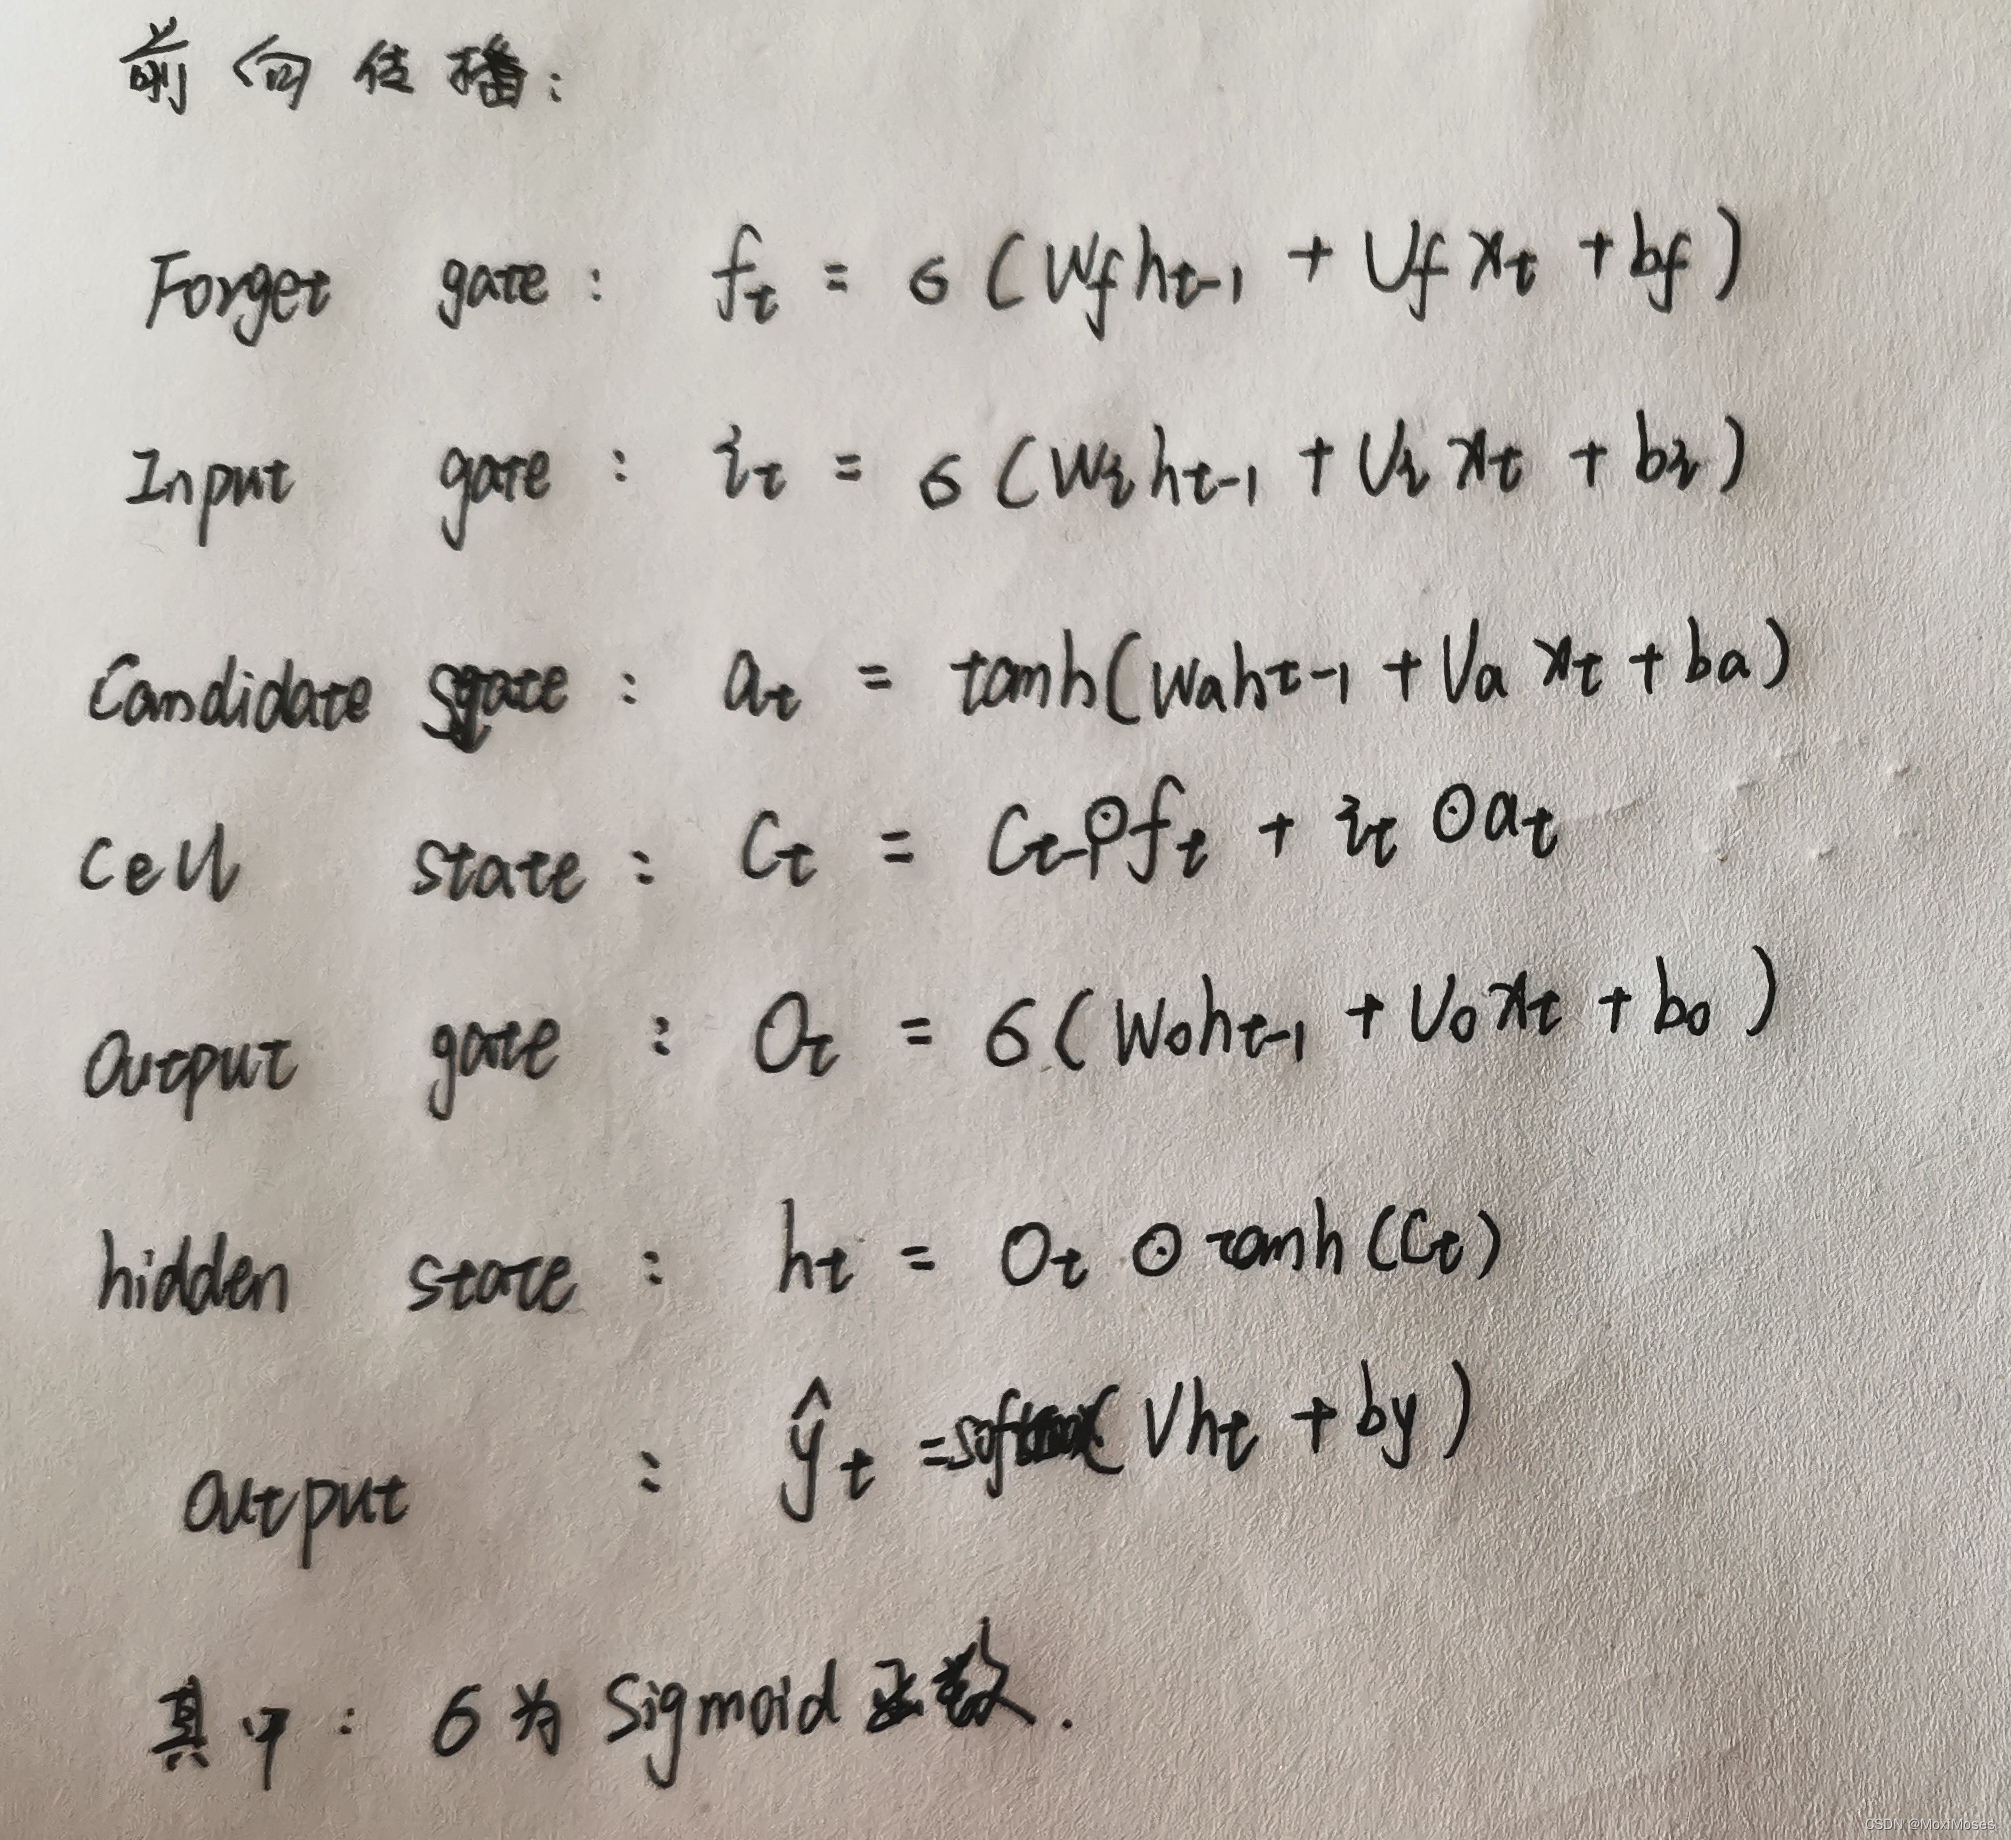 前向传播:
Forget gate: f_t = σ(W_f h_{t-1} + U_f x_t + b_f)
Input gate: i_t = σ(W_i h_{t-1} + U_i x_t + b_i)
Candidate gate: a_t = tanh(W_a h_{t-1} + U_a x_t + b_a)
Cell state: C_t = C_{t-1} ⊙ f_t + i_t ⊙ a_t
Output gate: O_t = σ(W_o h_{t-1} + U_o x_t + b_o)
hidden state: h_t = O_t ⊙ tanh(C_t)
output: ŷ_t = softmax(V h_t + b_y)
其中: σ为Sigmoid函数.
CSDN @MoxiMoses